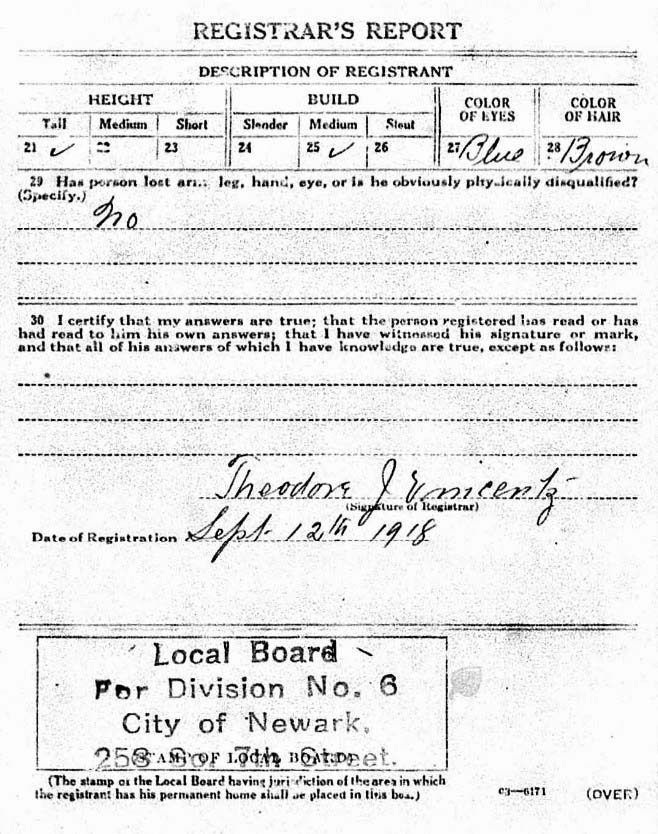 REGISTRAR'S REPORT
DESCRIPTION OF REGISTRANT
HEIGHT BUILD COLOR OF EYES COLOR OF HAIR
Tall Medium Short Slender Medium Stout
21 ✓ 22 23 24 25 ✓ 26 27 Blue 28 Brown
29 Has person lost arm, leg, hand, eye, or is he obviously physically disqualified?
(Specify.)
No
30 I certify that my answers are true; that the person registered has read or has
had read to him his own answers; that I have witnessed his signature or mark,
and that all of his answers of which I have knowledge are true, except as follows:
Theodore J
(Signature of Registrar)
Date of Registration Sept 12th 1918
Local Board
For Division No. 6
City of Newark.
258 So. 7th Street.
(STAMP OF LOCAL BOARD)
(The stamp of the Local Board having jurisdiction of the area in which
the registrant has his permanent home shall be placed in this box.)
03—6171 (OVER)